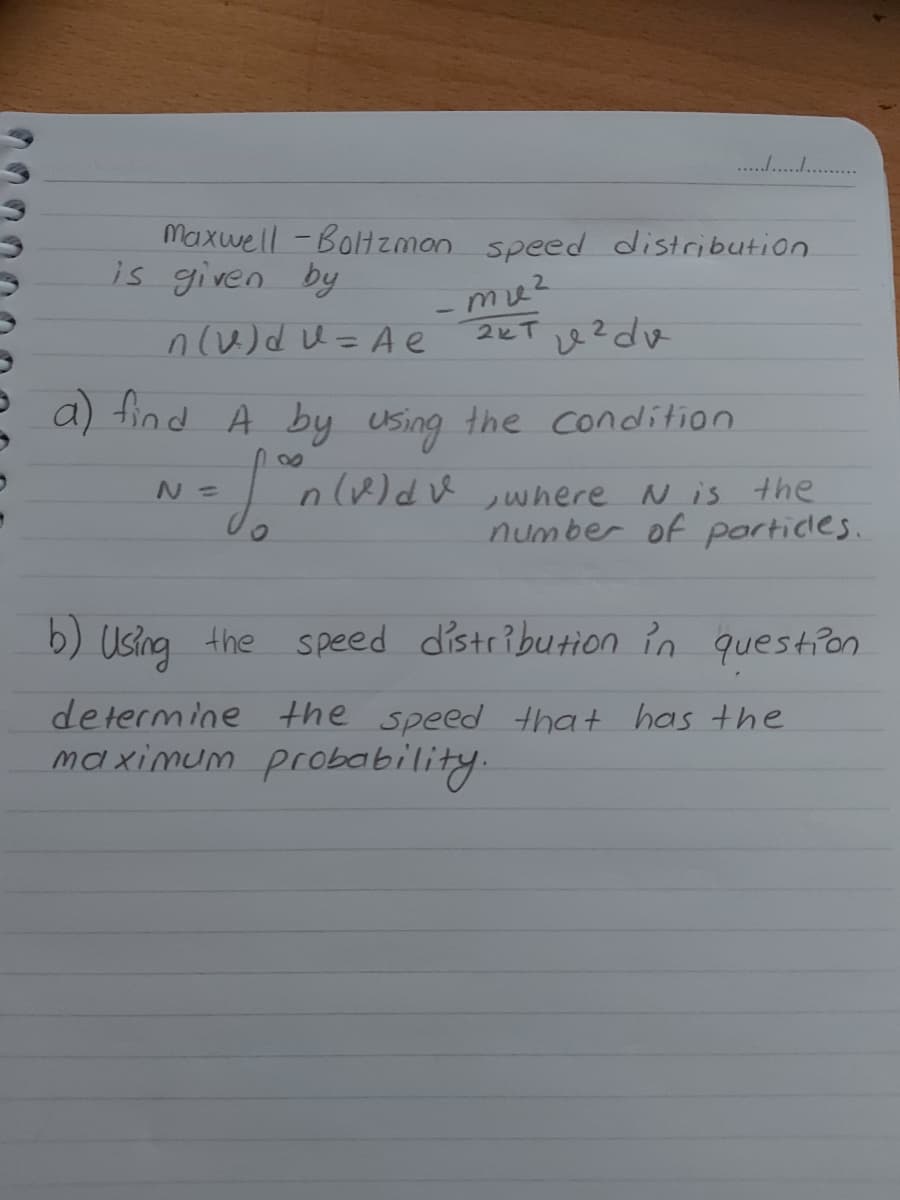 ...../...../.........
Maxwell - Boltzman speed distribution
is given by
n(v)dv = A e^{-mv²/2kT} v² dv
a) find A by using the condition
N = ∫₀^∞ n(v)dv , where N is the
number of particles.
b) Using the speed distribution in question
determine the speed that has the
maximum probability.